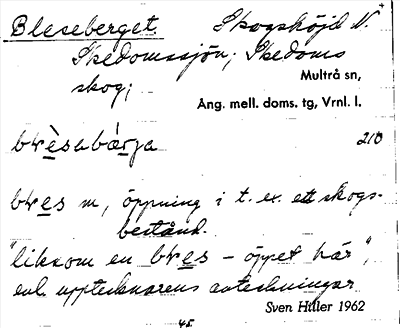 Bleseberget. Skogshöjd N.
Skedomssjön; Skedoms
skog;
Multrå sn,
Ang. mell. doms. tg, Vrnl. l.
brèsabárja 210
bres m, öppning i t. ex. ett skogs-
bestånd.
"liksom en bres – öppet här",
enl. upptecknarens anteckningar
Sven Hiller 1962
45